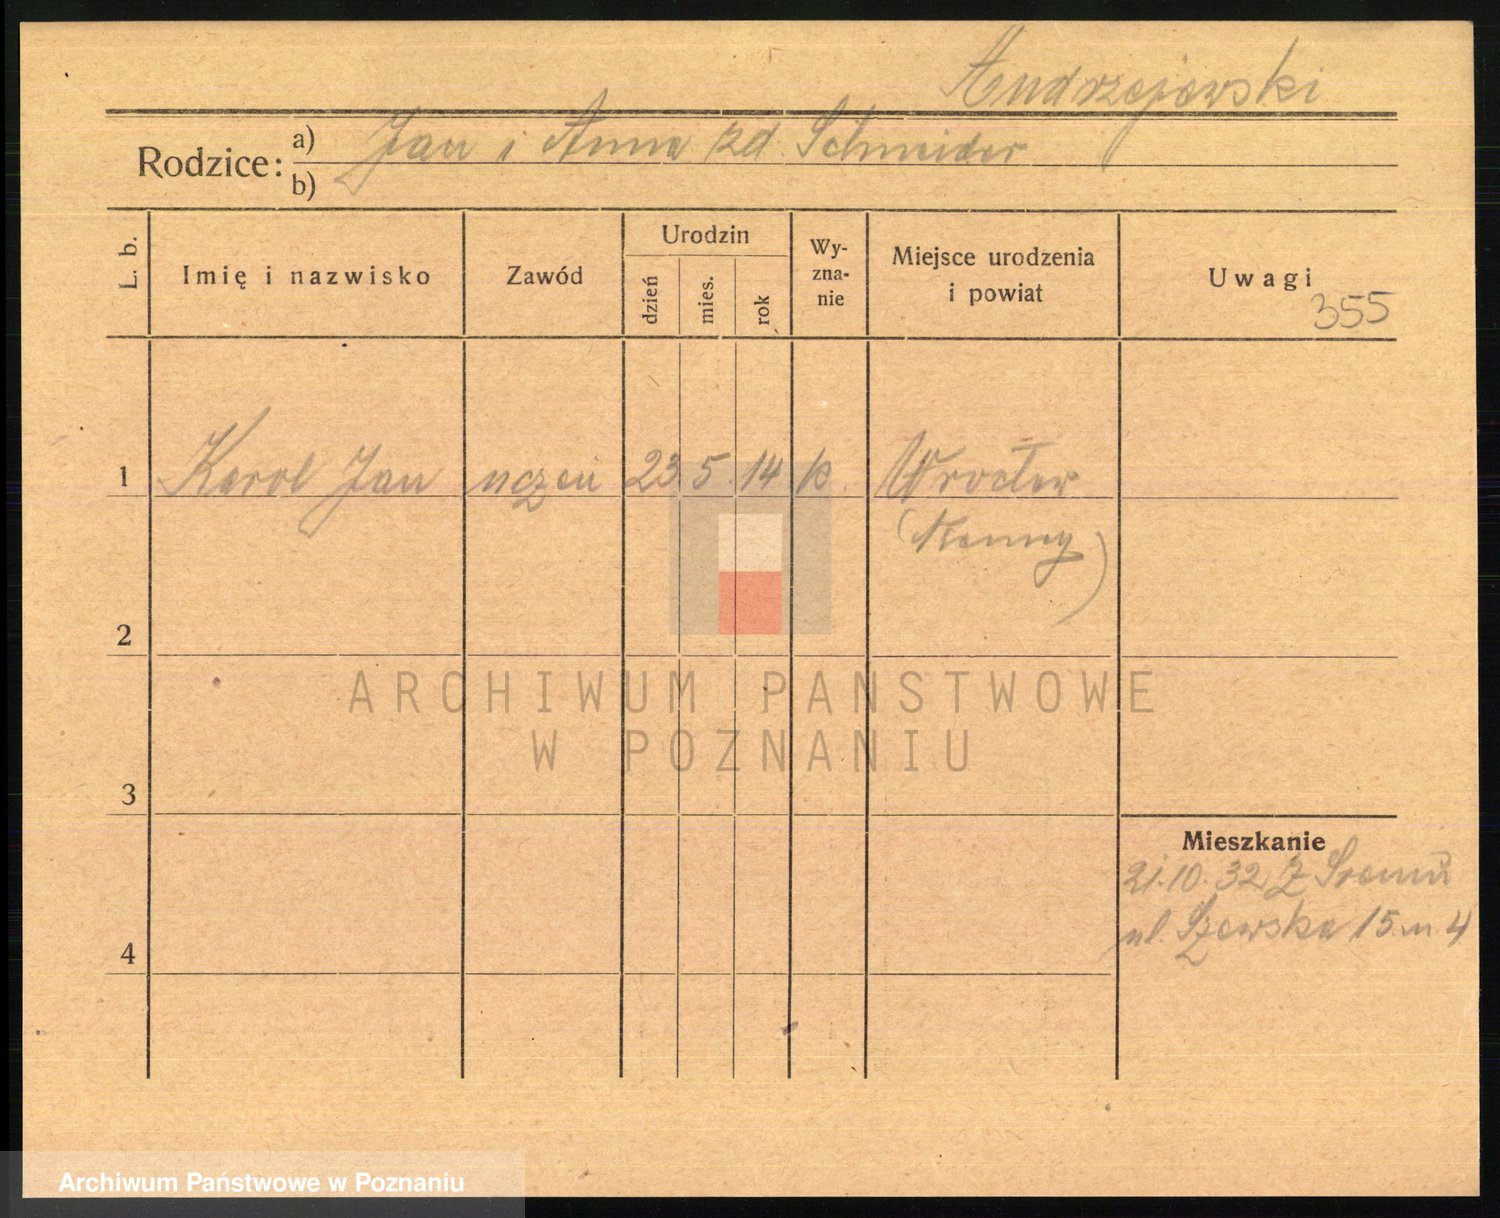 Andrzejewski
Rodzice: a) Jan i Anna zd. Schneider
b)
L. b.
Imię i nazwisko
Zawód
Urodzin
dzień
mies.
rok
Wy-
zna-
nie
Miejsce urodzenia
i powiat
Uwagi
355
1 Karol Jan uczeń 23. 5. 14 k. Wrocław
(Niemcy)
2
ARCHIWUM PAŃSTWOWE
W POZNANIU
3
Mieszkanie
21.10.32 z Śremu
ul. Szewska 15 m 4
4
Archiwum Państwowe w Poznaniu